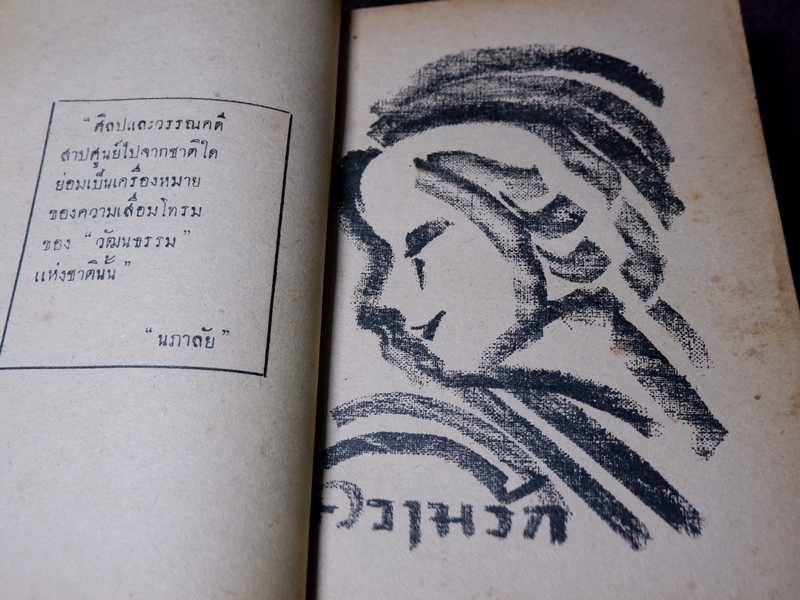 “ศิลปและวรรณคดี
สาปศูนย์ไปจากชาติใด
ย่อมเป็นเครื่องหมาย
ของความเสื่อมโทรม
ของ “วัฒนธรรม”
แห่งชาตินั้น”
“นภาลัย”
ความรัก